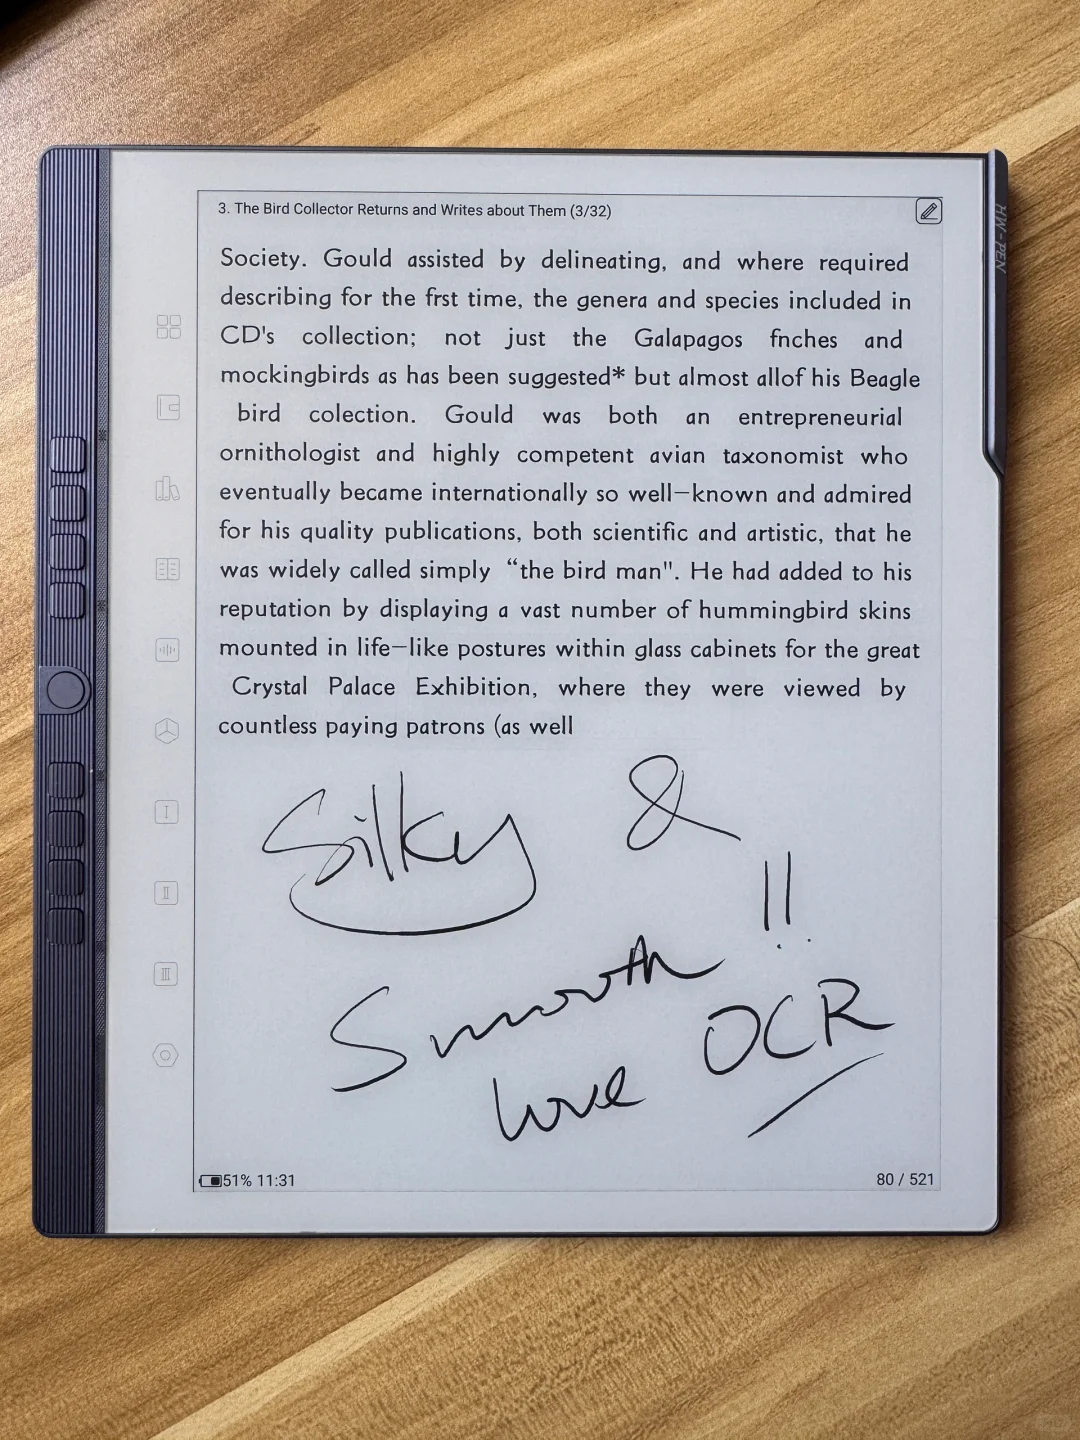 3. The Bird Collector Returns and Writes about Them (3/32)
Society. Gould assisted by delineating, and where required
describing for the frst time, the genera and species included in
CD's collection; not just the Galapagos fnches and
mockingbirds as has been suggested* but almost allof his Beagle
bird colection. Gould was both an entrepreneurial
ornithologist and highly competent avian taxonomist who
eventually became internationally so well—known and admired
for his quality publications, both scientific and artistic, that he
was widely called simply “the bird man". He had added to his
reputation by displaying a vast number of hummingbird skins
mounted in life—like postures within glass cabinets for the great
Crystal Palace Exhibition, where they were viewed by
countless paying patrons (as well
Silky &
Smooth !!
love OCR
51% 11:31
80 / 521
HW-PEN
I
II
III